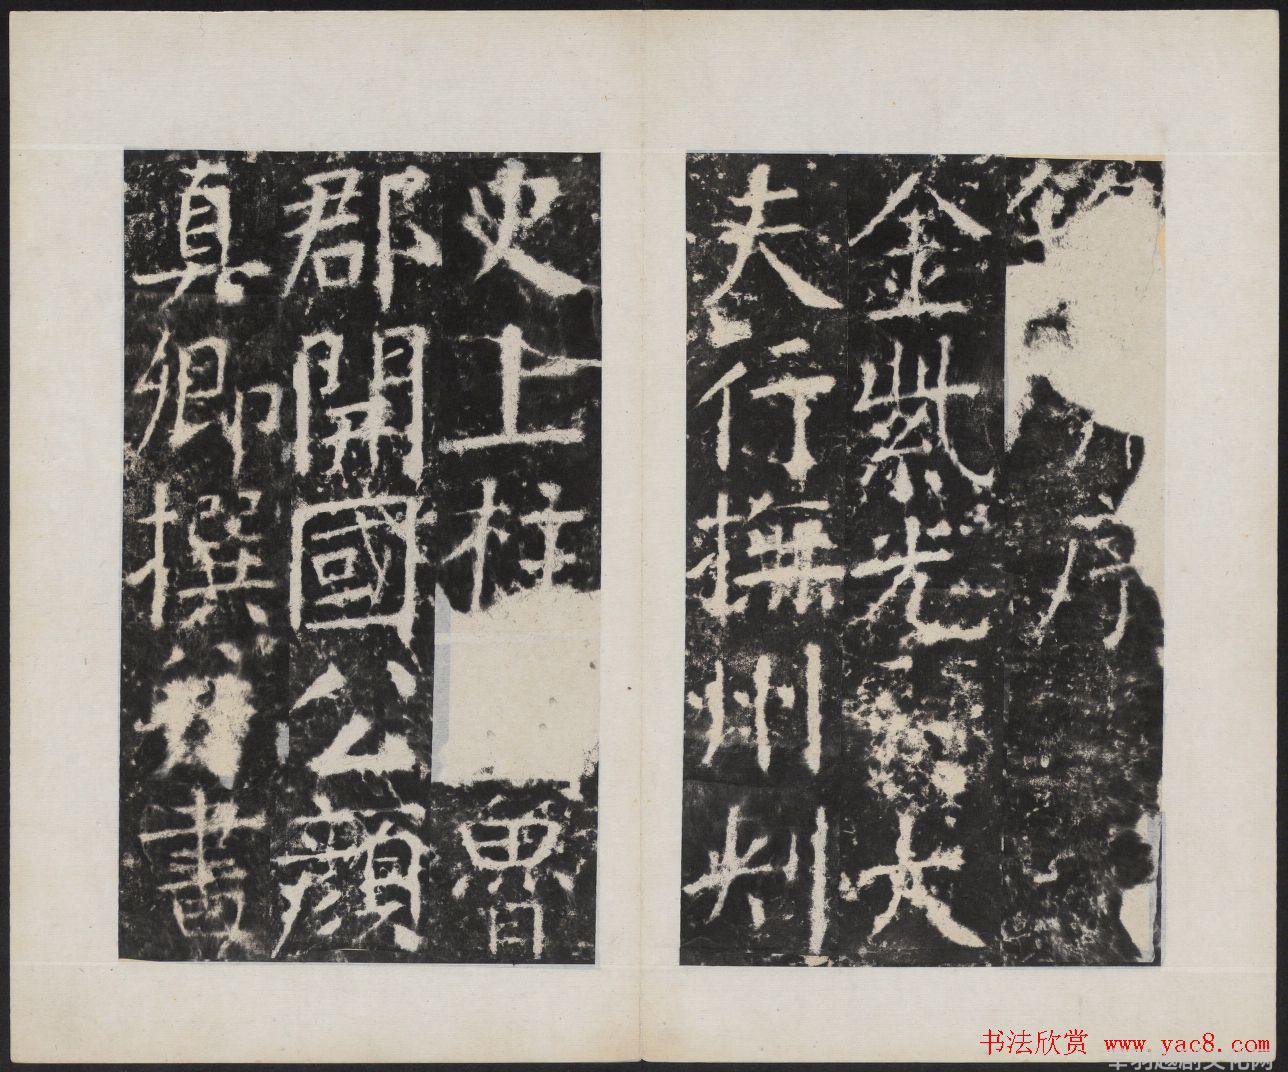 序
金紫光大
夫行撫州刺
史上柱魯
郡開國公顏
真卿撰書
书法欣赏 www.yac8.com